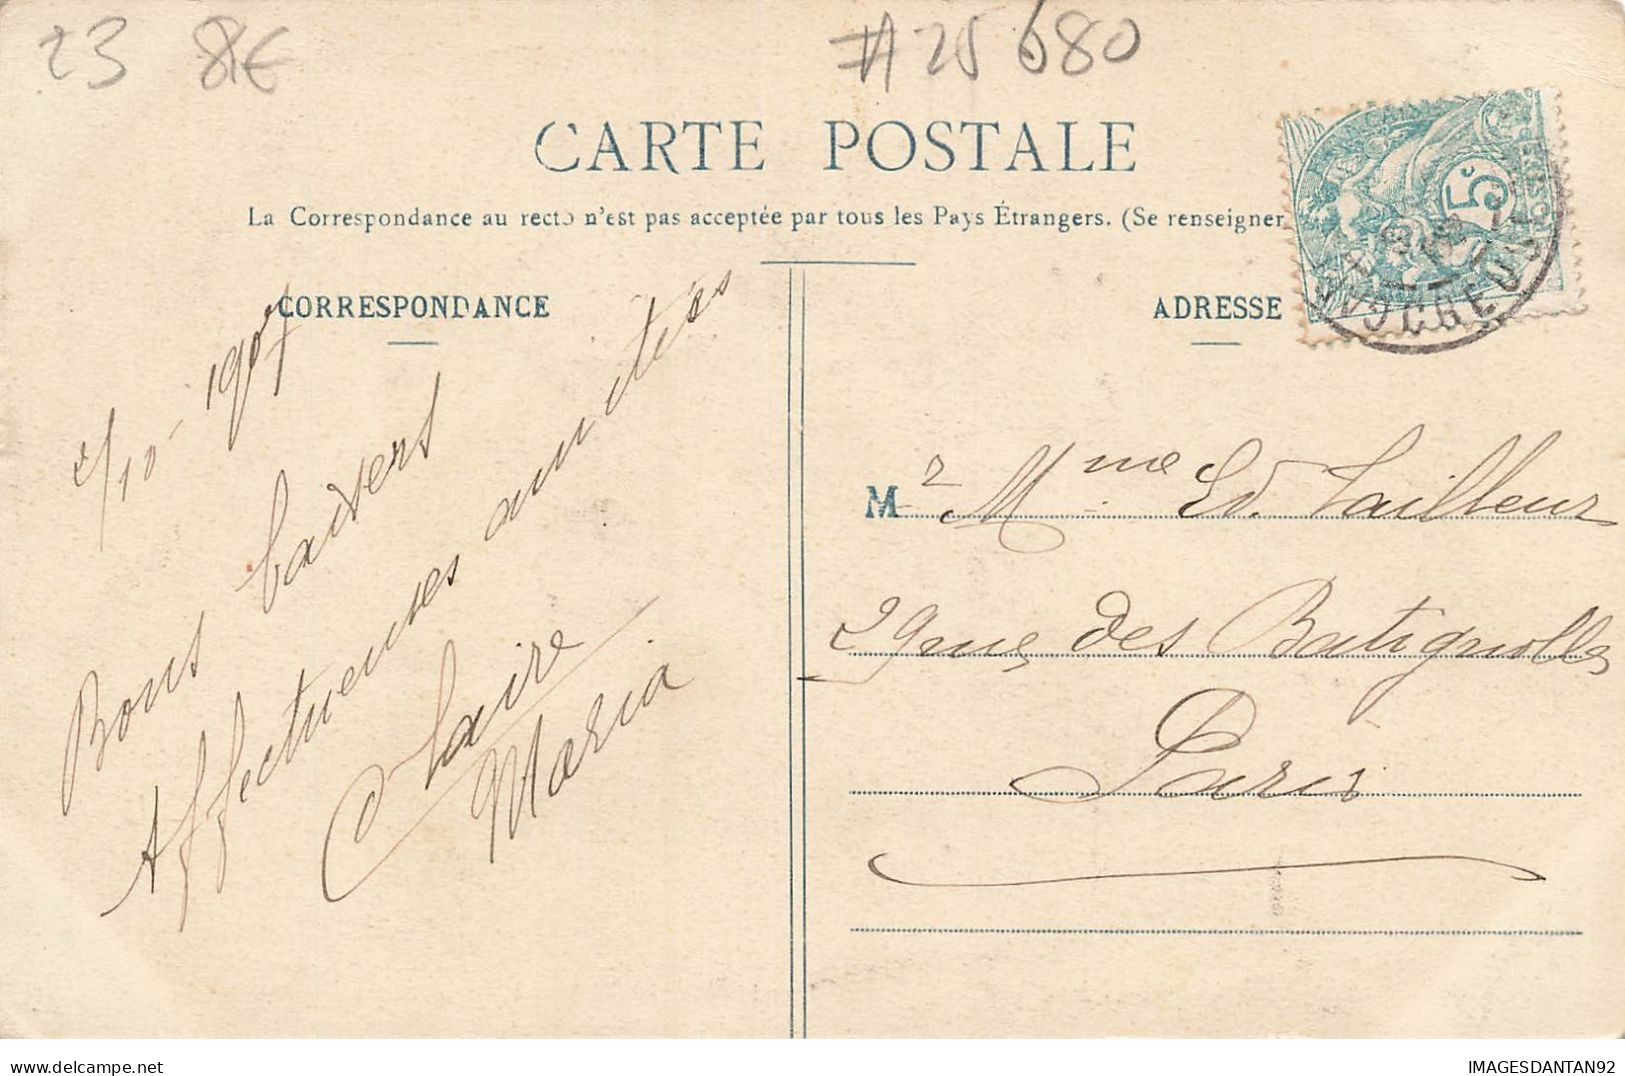 23 8€ #25680
CARTE POSTALE
La Correspondance au recto n'est pas acceptée par tous les Pays Étrangers. (Se renseigner
5c
CREUSE
CORRESPONDANCE
ADRESSE
2/10 1907
Bons baisers
Affectueuses amitiés
Claire
Maria
M r Mme Ed. Tailleur
29 rue des Batignolles
Paris
IMAGESDANTAN92